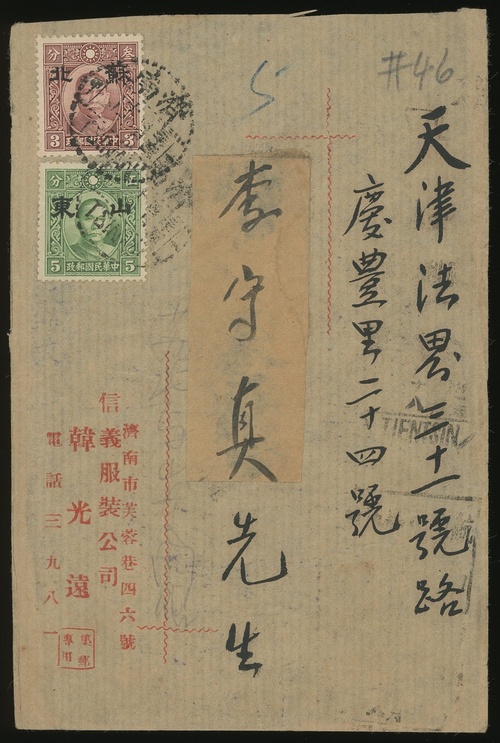 #46
天津法界三十一號路
慶豐里二十四號
李守真先生
5
濟南市芙蓉巷四六號
信義服裝公司
韓光遠
電話三九八一
叁
分
蘇北
3
3
中華民國郵政
分
山東
5
5
中華民國郵政
濟南
TIENTSIN